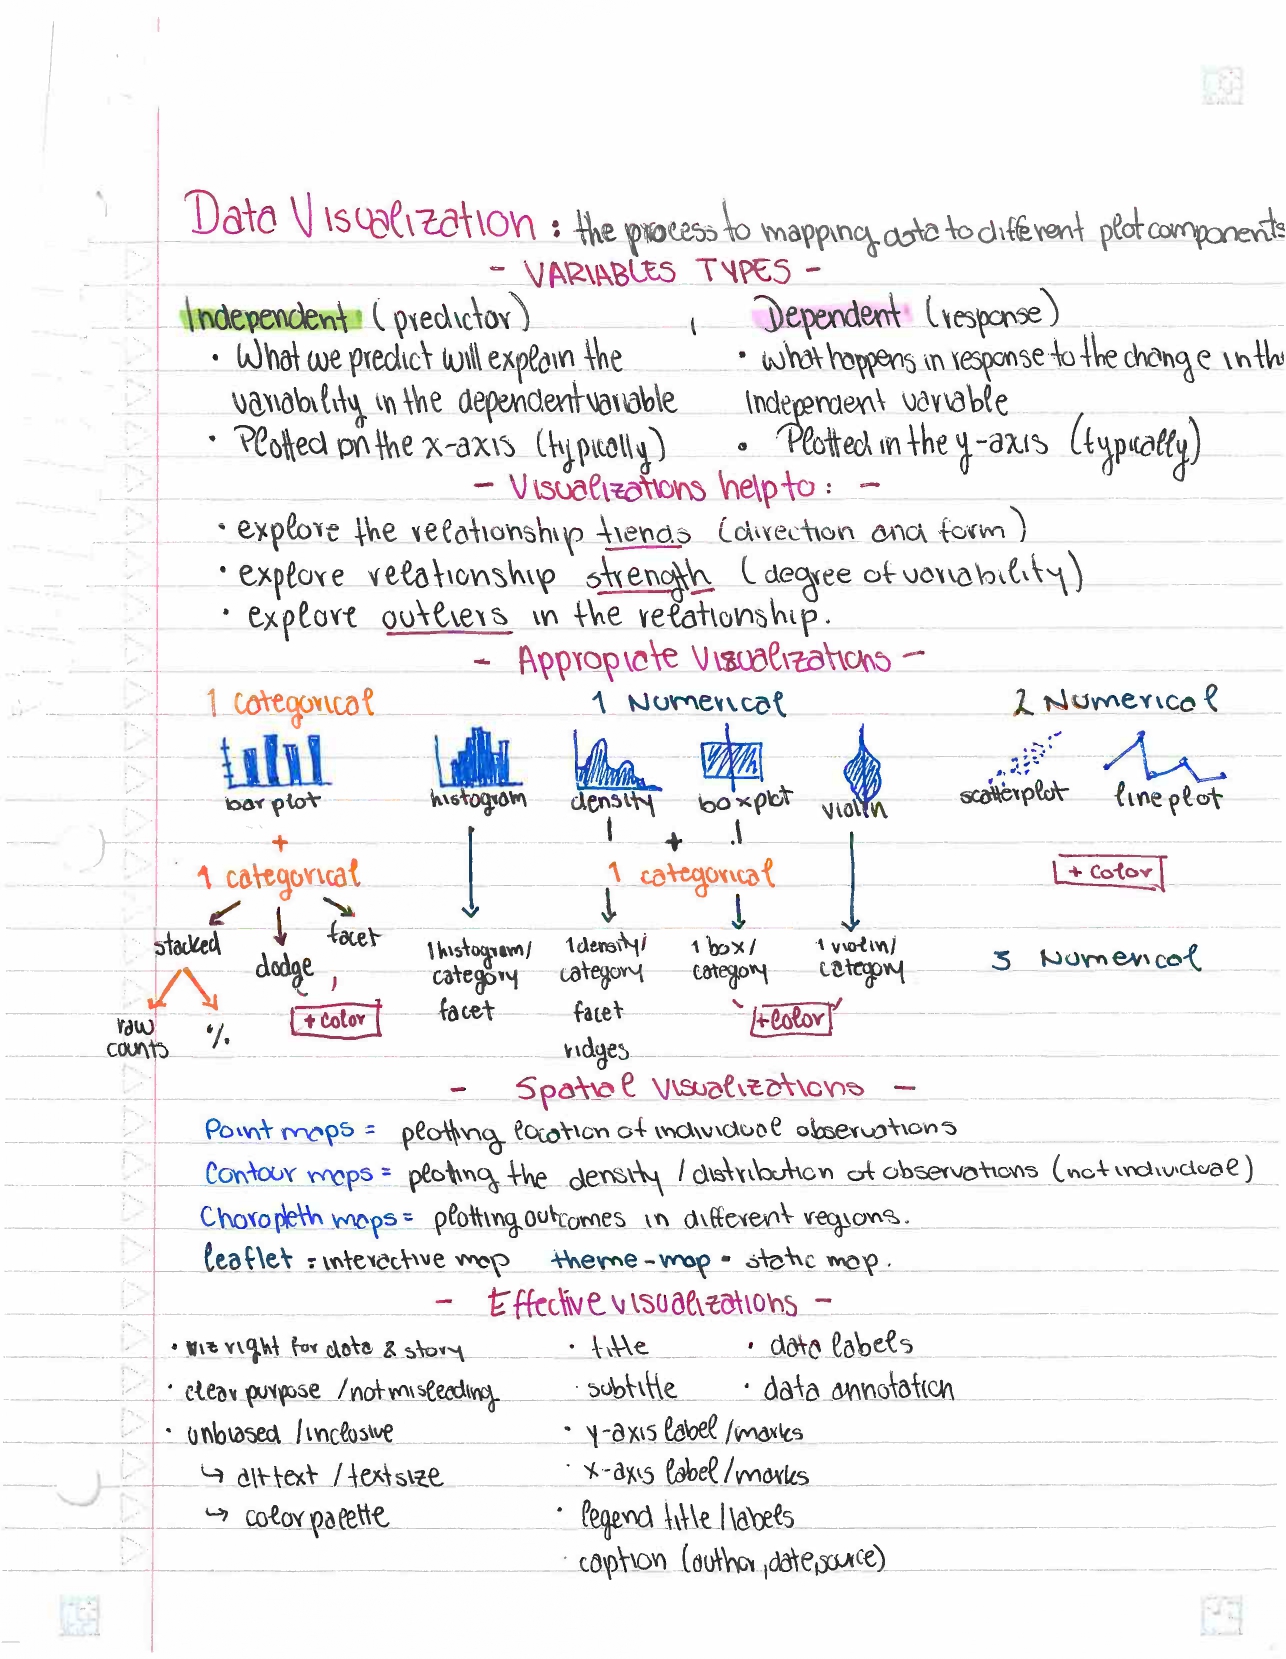 Data Visualization : the process to mapping data to different plot components
- VARIABLES TYPES -
Independent (predictor)
Dependent (response)
• What we predict will explain the
variability in the dependent variable
• Plotted on the x-axis (typically)
• what happens in response to the change in the
Independent variable
• Plotted in the y-axis (typically)
- Visualizations help to : -
• explore the relationship trends (direction and form)
• explore relationship strength (degree of variability)
• explore outliers in the relationship.
- Appropiate Visualizations -
1 Categorical
1 Numerical
2 Numerical
bar plot
histogram
density
boxplot
violin
scatterplot
line plot
+
+
1 categorical
1 categorical
+ color
stacked
dodge
facet
1 histogram/
category
facet
1 density/
category
facet
ridges
1 box/
category
1 violin/
category
3 Numerical
raw
counts
%
+ color
+ color
- Spatial Visualizations -
Point maps = plotting location of individual observations
Contour maps = ploting the density / distribution of observations (not individual)
Choropleth maps = plotting outcomes in different regions.
leaflet = interactive map theme-map = static map.
- Effective visualizations -
• viz right for data & story
• clear purpose / not misleading
• unbiased / inclusive
↳ alt text / text size
↳ color palette
• title
• subtitle
• y-axis label / marks
• x-axis label / marks
• legend title / labels
• caption (author, date, source)
• data labels
• data annotation